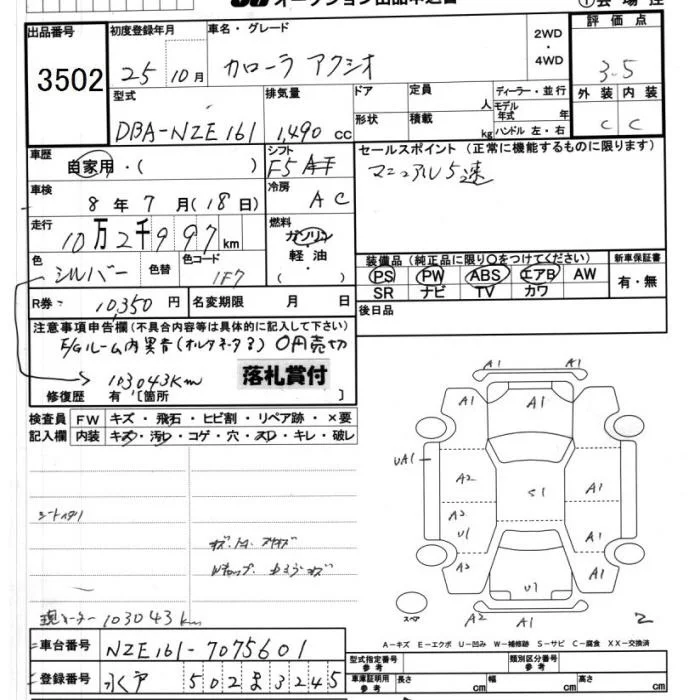 オークション出品申込書
出品番号 3502
初度登録年月 25 10月
車名・グレード カローラ アクシオ
2WD ・ 4WD
評価点 3.5
外装 内装
C C
型式 DBA-NZE161
排気量 1,490 cc
ドア 形状
定員 人
積載 kg
ディーラー・並行
モデル年式 年
ハンドル 左・右
車歴 自家用・( )
シフト F5
冷房 AC
セールスポイント (正常に機能するものに限ります)
マニュアル5速
車検 8年 7月(18日)
走行 10万2千997km
燃料 ガソリン 軽油 ( )
色 シルバー 色替
色コード 1F7
装備品 (純正品に限り○をつけてください)
PS PW ABS エアB AW
SR ナビ TV カワ
新車保証書 有・無
R券 10,350円
名変期限 月 日
後日品
注意事項申告欄(不具合内容等は具体的に記入して下さい)
E/Gルーム内異音(オルタネータ3) 0円売切
103043Km
落札賞付
修復歴 有 [箇所 ]
検査員 FW キズ・飛石・ヒビ割・リペア跡・×要
記入欄 内装 キズ・汚れ・コゲ・穴・スレ・キレ・破レ
現メーター 103043km
A1 A1
A1 A1 A1
UA1
A2 S1 A1
A2
U1 A1
A2 U1 A1
A2 A1
スペア
2
A-キズ E-エクボ U-凹み W-補修跡 S-サビ C-腐食 XX-交換済
車台番号 NZE161-7075601
型式指定番号 参考
類別区分番号 参考
登録番号 502 ま 3245
車庫証明用 参考 長さ cm 幅 cm 高さ cm